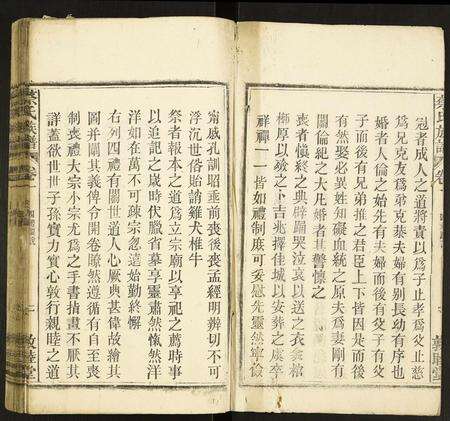 冠者成人之道將責以爲子止孝爲父止慈
爲兄克友爲弟克恭夫婦有别長幼有序也
婚者人倫之始先有夫婦而後有父子有父
子而後有兄弟推之君臣上下皆因是而後
有然娶必異姓知礙血統之原夫爲妻剛有
關倫紀之大凡婚者其警懷之
喪者愼終之典辟踊哭泣哀以送之衣衾棺
槨厚以殮之卜吉兆擇佳城以安葬之虞卒
祥禫一一皆如禮制庶可妥慰先靈然寧儉
甯戚孔訓昭垂前喪後喪孟經明辨切不可
浮沉世俗貽誚雞犬椎牛
祭者報本之道爲立宗廟以享祀之薦時事
以追記之歲時伏臘省墓享靈肅然愾然洋
洋如在萬不可疎宗忽遠始勤終懈
右列四禮有關世道人心厥典甚偉故繪其
圖幷闡其義俾令開卷瞭然遵循有自至喪
制喪禮大宗小宗尤爲之手書指畫不厭其
詳蓋欲世世子孫實力實心敦行親睦之道
蔡氏族譜
卷
敦睦堂